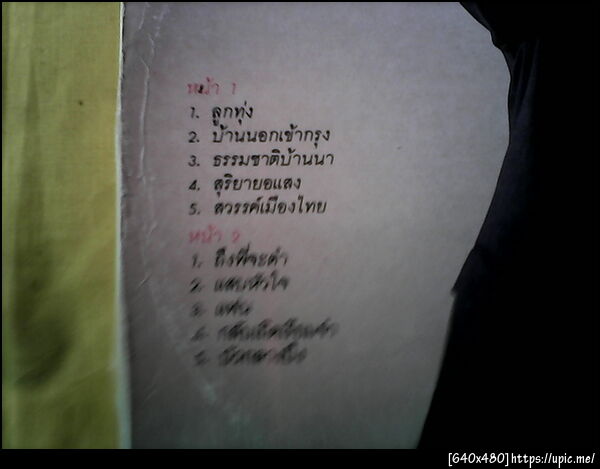 หน้า 1
1. ลูกทุ่ง
2. บ้านนอกเข้ากรุง
3. ธรรมชาติบ้านนา
4. สุริยายอแสง
5. สวรรค์เมืองไทย
หน้า 2
1. ถึงพี่จะดำ
2. แสบหัวใจ
3. แฟน
4.
5.
[640x480]https://upic.me/